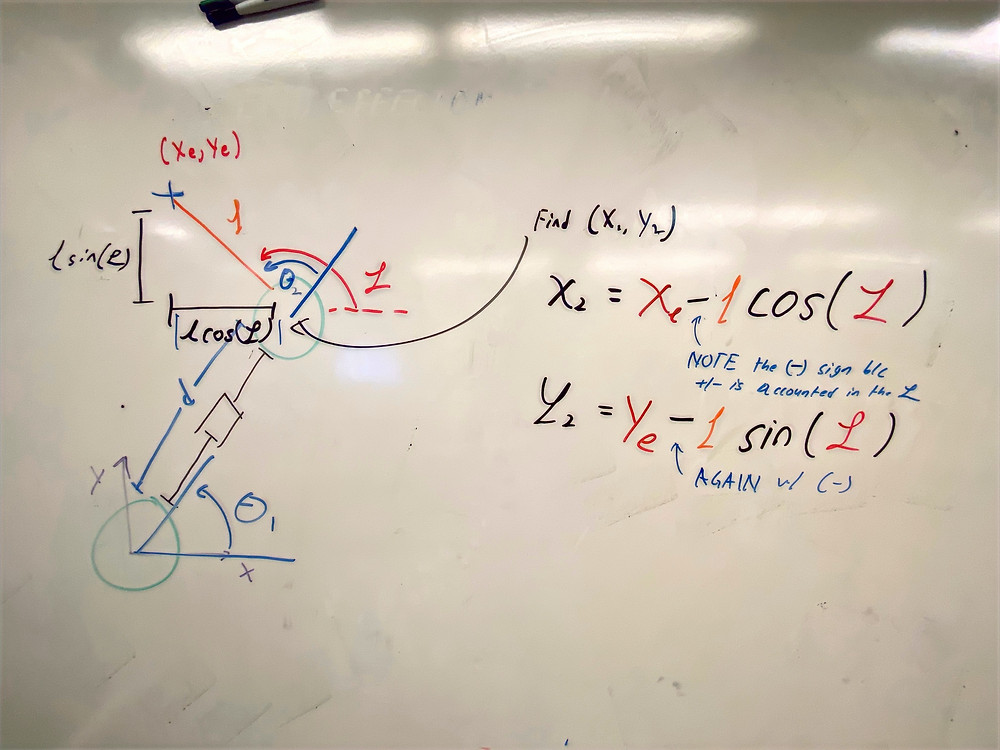 (Xe, Ye)
l
l sin(L)
θ₂
L
|l cos(L)|
d
Y
θ₁
X
Find (X₂, Y₂)
X₂ = Xe - l cos(L)
NOTE the (-) sign b/c
+/- is accounted in the L
Y₂ = Ye - l sin(L)
AGAIN w/ (-)